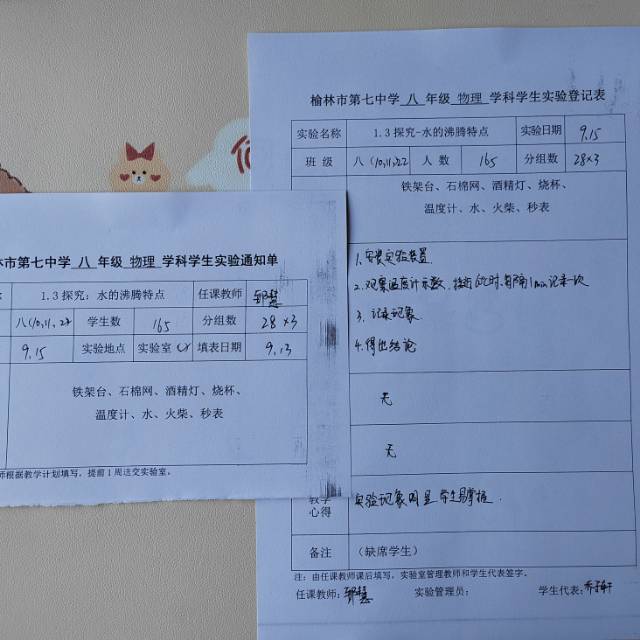 榆林市第七中学 八 年级 物理 学科学生实验登记表
实验名称 1.3 探究-水的沸腾特点 实验日期 9.15
班 级 八(10,11,22 人 数 165 分组数 28×3
铁架台、石棉网、酒精灯、烧杯、
温度计、水、火柴、秒表
1.安装实验装置
2.观察温度计示数,接近 时,每隔1min记录一次
3.记录现象
4.得出结论
无
无
教学
心得
实验现象明显 学生易掌握.
备注 (缺席学生)
注:由任课教师课后填写,实验室管理教师和学生代表签字。
任课教师: 实验管理员: 学生代表:
林市第七中学 八 年级 物理 学科学生实验通知单
1.3 探究:水的沸腾特点 任课教师
八(10,11,22) 学生数 165 分组数 28×3
9.15 实验地点 实验室 填表日期 9.13
铁架台、石棉网、酒精灯、烧杯、
温度计、水、火柴、秒表
师根据教学计划填写,提前1周送交实验室。